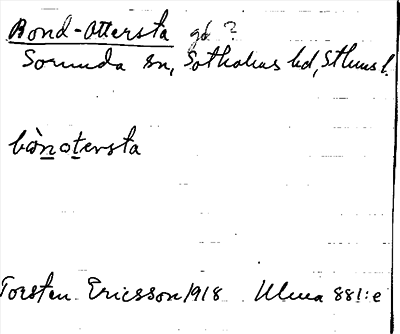 Bond-Ottersta gd ?
Sorunda sn, Sotholms hd, Sthms l.
bònotersta
Torsten Ericsson 1918 Ulma 881:e